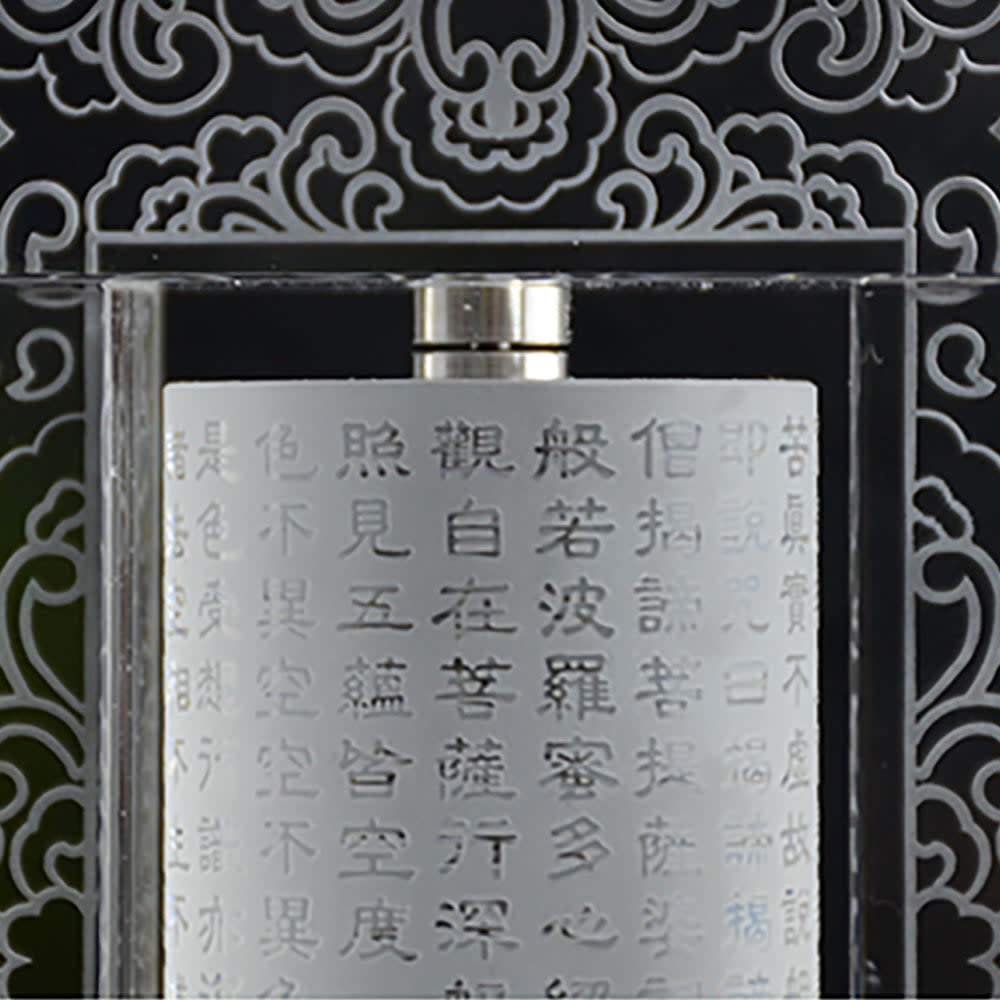 苦眞實不虛故說
即說咒曰揭諦揭
僧揭諦菩提薩婆
般若波羅蜜多心經
觀自在菩薩行深般
照見五蘊皆空度
色不異空空不異色
是色受想行識亦